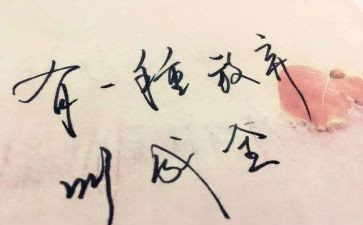 有一種放弃
叫成全